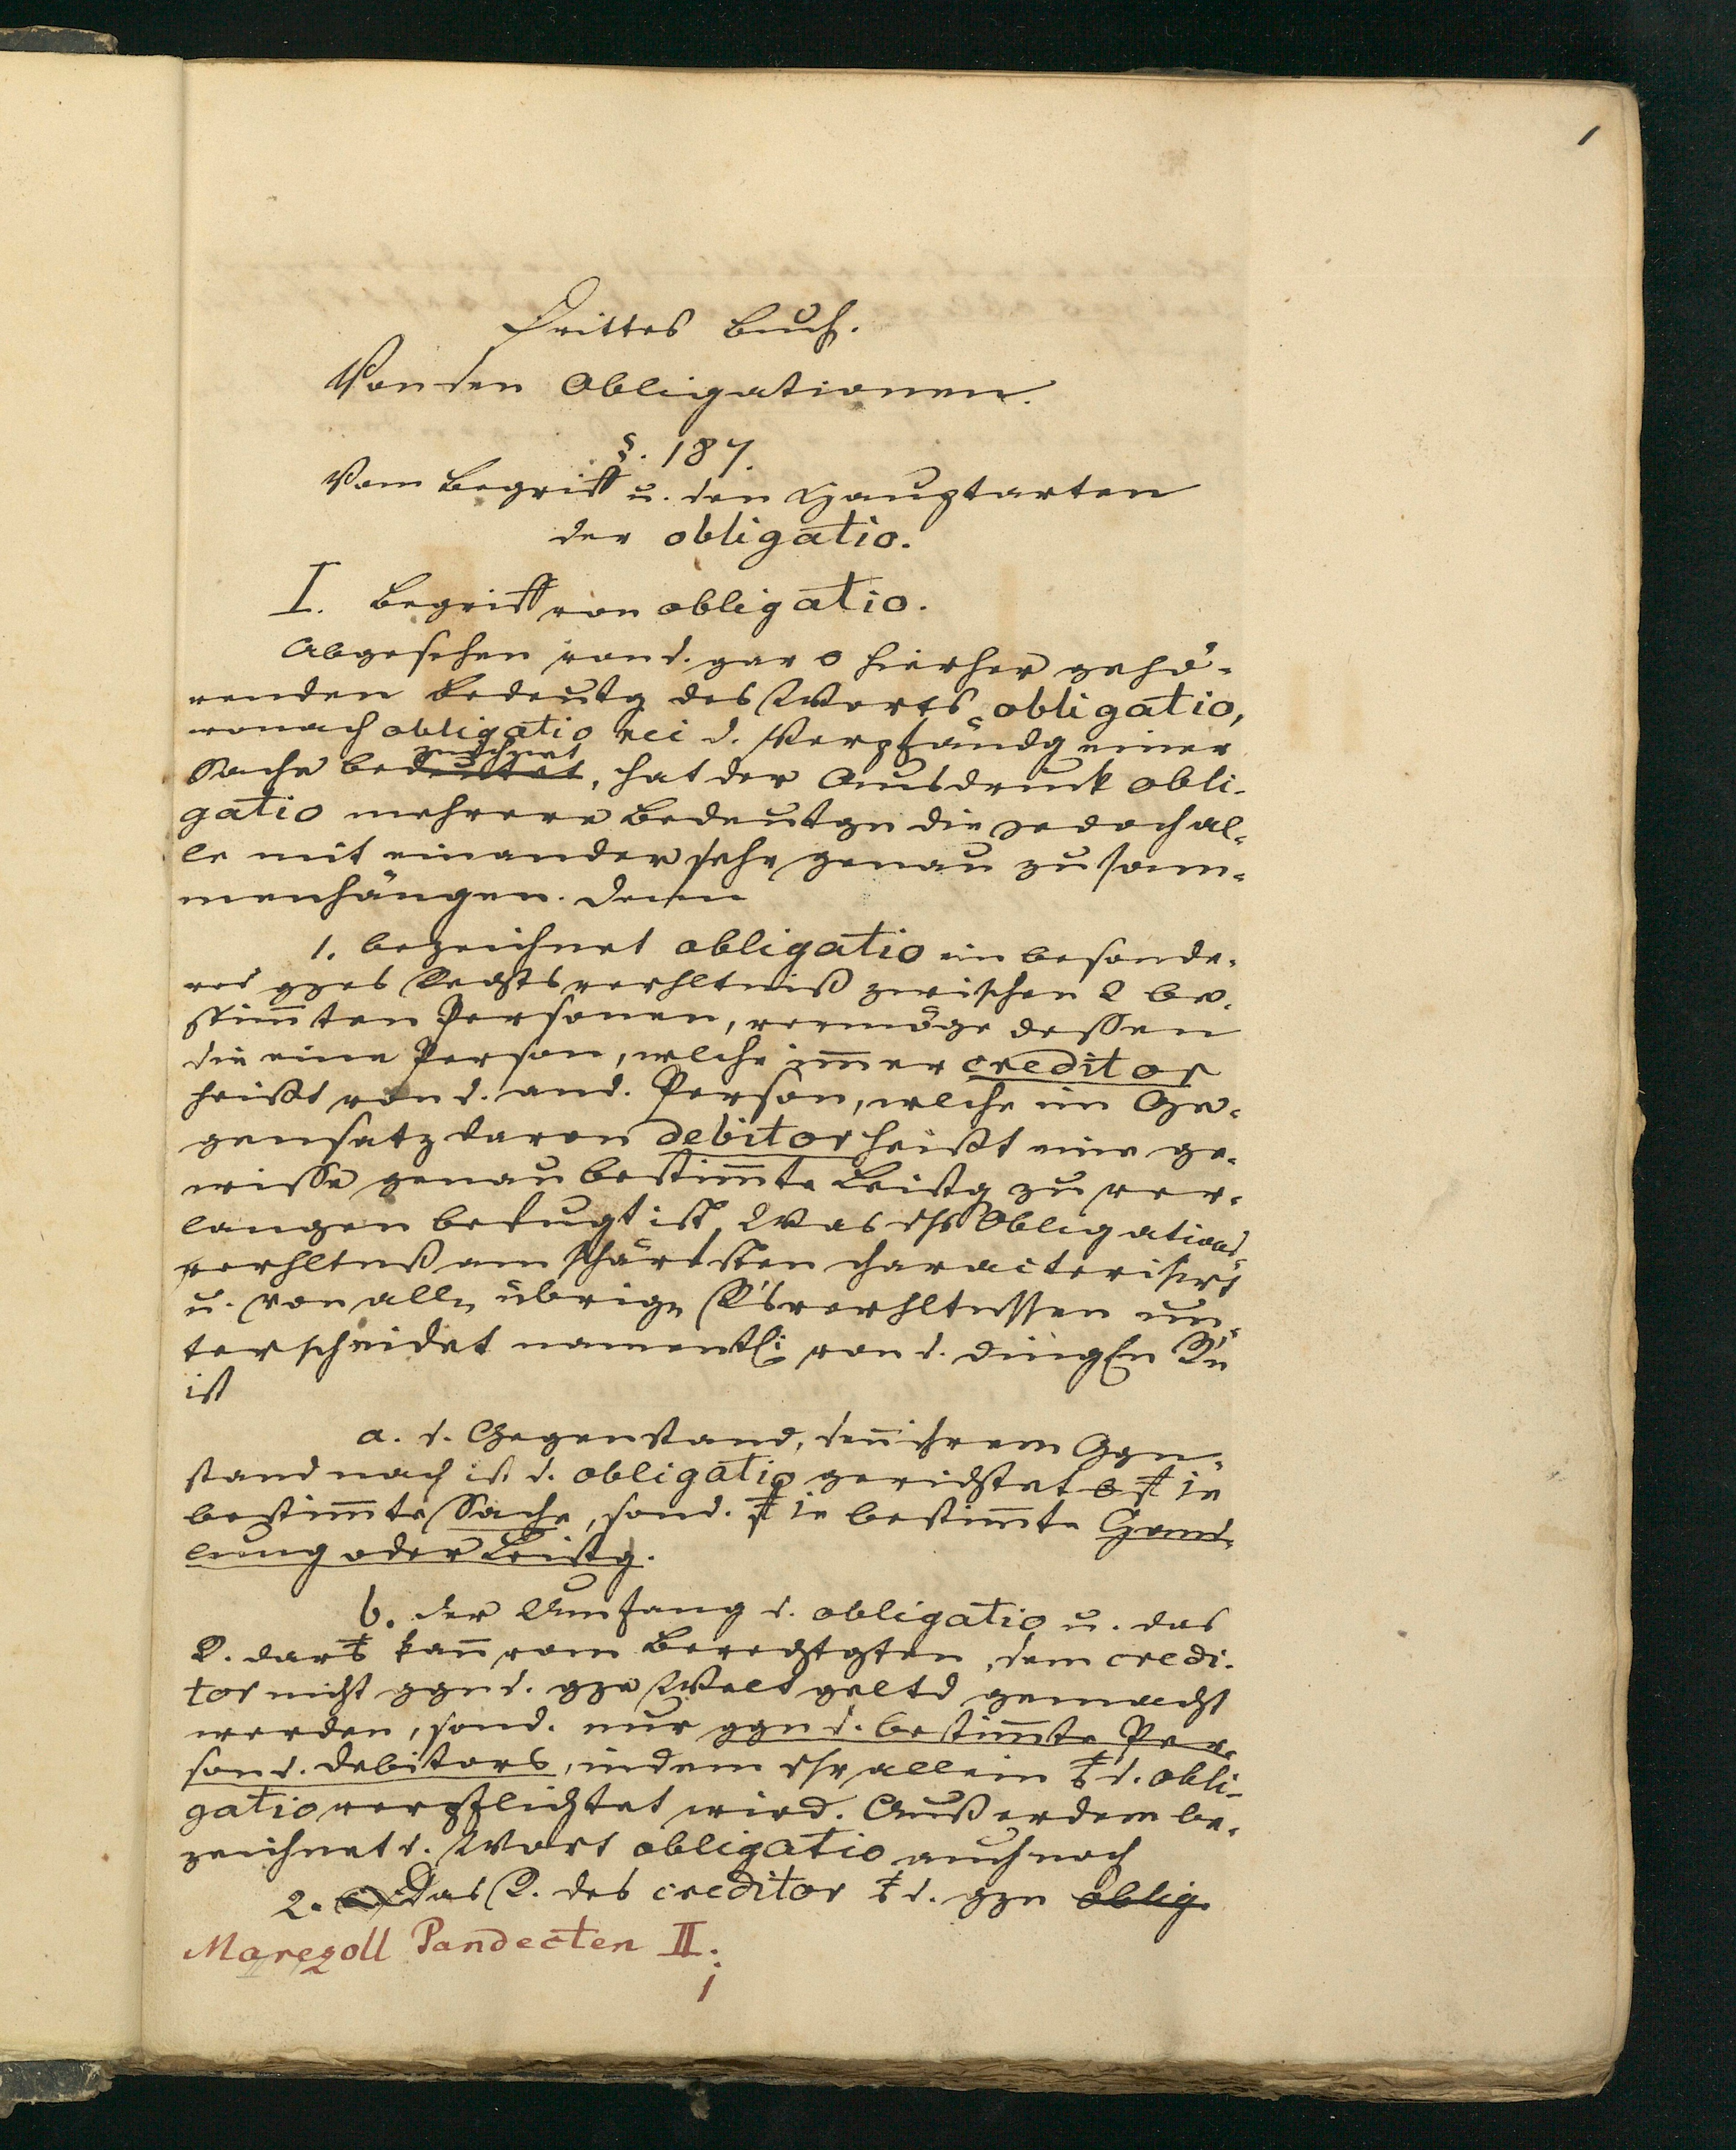 1
Drittes Buch.
Von den Obligationen.
§. 187.
Vom Begriff u. den Hauptarten
der obligatio.
I. Begriff von obligatio.
Abgesehen von d. gar o hierher gehö-
renden Bedeutg des Worts obligatio,
wonach obligatio rei d. Verpfändg einer
zeichnet
Sache bedeutet, hat der Ausdruck obli-
gatio mehrere Bedeutgn die jedoch al-
le mit einander sehr genau zusam-
menhängen. Denn
1. bezeichnet obligatio ein besonde-
res gzes Rechtsverhltniß zwischen 2 be-
stim̅ten Personen, vermöge dessen
die eine Person, welche im̅er creditor
heißt von d. and. Person, welche im Ge-
gensatz davon debitor heißt eine ge-
wisse genau bestim̅te Leistg zu ver-
langen befugt ist. Was dss Obligations-
verhltnß am schärfsten characterisirt
u. von alln übrign R'sverhltnssen un-
terscheidet namentl. von d. dingln R'n
ist
a. d. Gegenstand, den̅ ihrem Ggn-
stand nach ist d. obligatio gerichtet o auf ie
bestim̅te Sache, sond. auf ie bestim̅te Hand-
lung oder Leistg.
b. der Umfang d. obligatio u. das
R. daraus kan̅ vom Berechtgten, dem credi-
tor nicht ggn d. gze Welt geltd gemacht
werden, sond. nur ggn d. bestim̅te Per-
son d. debitors, indem dsr allein aus d. obli-
gatio verpflichtet wird. Außerdem be-
zeichnet d. Wort obligatio auch noch
2. Das R. des creditor aus d. gzn oblig.
Marezoll Pandecten II.
1